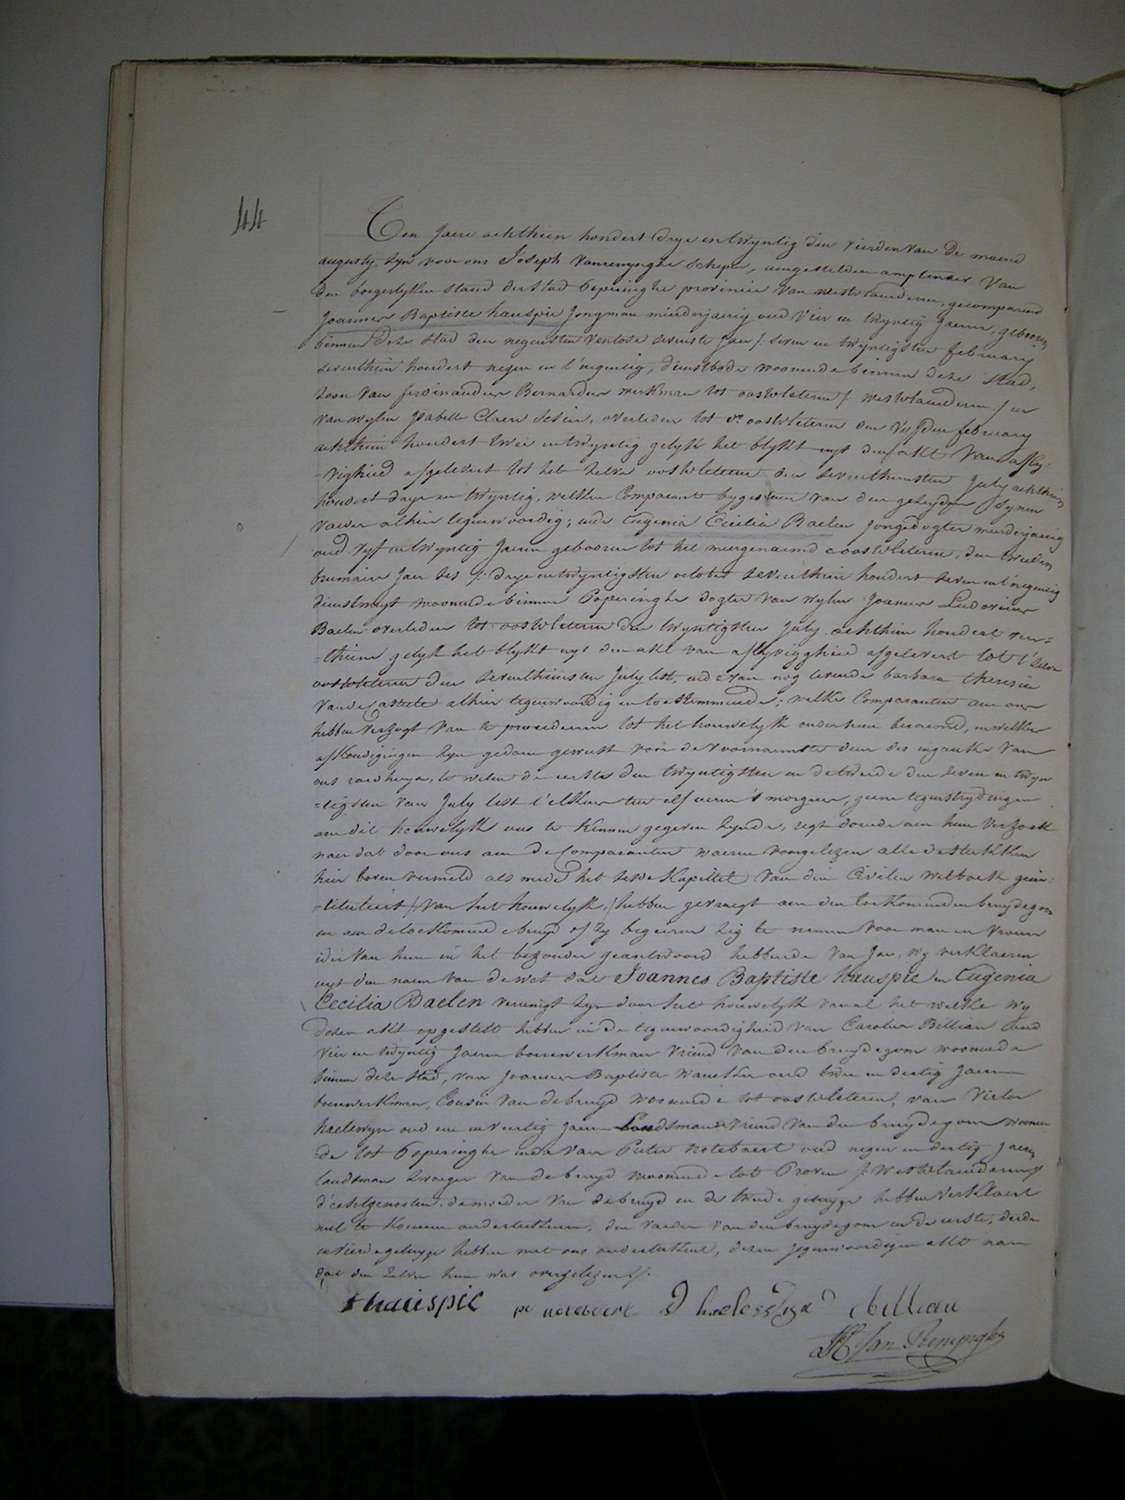 44
Ten Jaere achthien hondert drye en twyntig den vierden van de maend
augusty zyn voor ons Joseph Vanrenynghe schepen, aengestelden amptenaer van
den borgerlyken stand der stad Poperinghe provincie van westvlaenderen, gecompareerd
Joannes Baptiste hauspie Jongman minderjaerig oud vier en twyntig Jaeren, gebooren
binnen deze stad den negensten ventose sevenste Jaer /: seven en twyntigsten february
seventhien hondert negen en t'negentig, dienstbode woonende binnen deze stad,
zoon van ferdinandus Bernardus werkman tot oostvleteren /: westvlaenderen :/ en
van wylen Isabelle Clara, overleden tot oostvleteren den vyfden february
achthien hondert twee en twyntig gelyk het blykt uyt den akt van afly-
-vigheid afgelevert tot het zelve oostvleteren den seventhiensten July achthien
hondert drye en twyntig, welken Comparant bygestaen van den gezeyden synen
vader alhier tegenwoordig; ende Eugenia Cecilia Baelen Jongedogter meerderjaerig
oud vyf en twyntig Jaeren gebooren tot het meergenaemd oostvleteren, den tweeden
brumaire Jaer ses /: drye en twyntigsten october seventhien hondert seven en t'negentig
dienstmeyt woonende binnen Poperinghe dogter van wylen Joannes Ludovicus
Baelen overleden tot oostvleteren den twyntigsten July achthien hondert
-thiene gelyk het blykt uyt den akt van aflyvigheid afgelevert tot t'zelve
oostvleteren den seventhiensten July lest, ende van nog levende barbara theresia
Vande Casteele alhier tegenwoordig en toestemmende; welke Comparanten aen ons
hebben verzogt van te procederen tot het houwelyk onder hun beraemd, en welkers
afkondigingen zyn gedaen geweest voor de voornaemste deur des ingank van
ons raedhuys, te weten de eerste den twyntigsten en de tweede den seven en twyn
-tigsten van July lest t'elkens ten elf ueren 's morgens, geene tegenstrydingen
aen dit houwelyk ons te kennen gegeven zynde, regt doende aen hun verzoek
naer dat door ons aen de Comparanten waeren voorgelezen alle de stukken
hier boven vermeld als mede het seste Kapittel van den Civilen wetboek geïn-
-tituleert /: van het houwelyk, :/ hebben gevraegt aen den toekomenden bruydegom
en aen de toekomende bruyd of zy begeeren zig te nemen voor man en vrouw
ider van hun in het bezonder geantwoord hebbende van Jae, wy verklaeren
uyt den naem van de wet dat Joannes Baptiste Hauspie en Eugenia
Cecilia Baelen vereenigt zyn door het houwelyk van al het welke wy
dezen akt opgestelt hebben in de tegenwoordigheid van Carolus Billiau oud
vier en twyntig Jaeren bouwwerkman vriend van den bruydegom woonende
binnen deze stad, van Joannes Baptiste oud twee en dertig Jaeren
bouwwerkman, Cousin van de bruyd woonende tot oostvleteren, van Victor
haelewyn oud een en veertig Jaeren Landsman vriend van den bruydegom woonen
de tot Poperinghe ende van Pieter notebaert oud negen en dertig Jaeren
landsman zwager van de bruyd woonende tot Proven /: westvlaenderen :/
d'echtgenooten, de moeder van de bruyd en de tweede getuyge hebben verklaert
niet te konnen onderteekenen, den vader van den bruydegom en de eerste, derde
en vierde getuyge hebben met ons onderteekent, dezen jegenwoordigen akt naer
dat den zelven hun was overgelezen.
hauspie pe notebaert Billiau
Van Renynghe